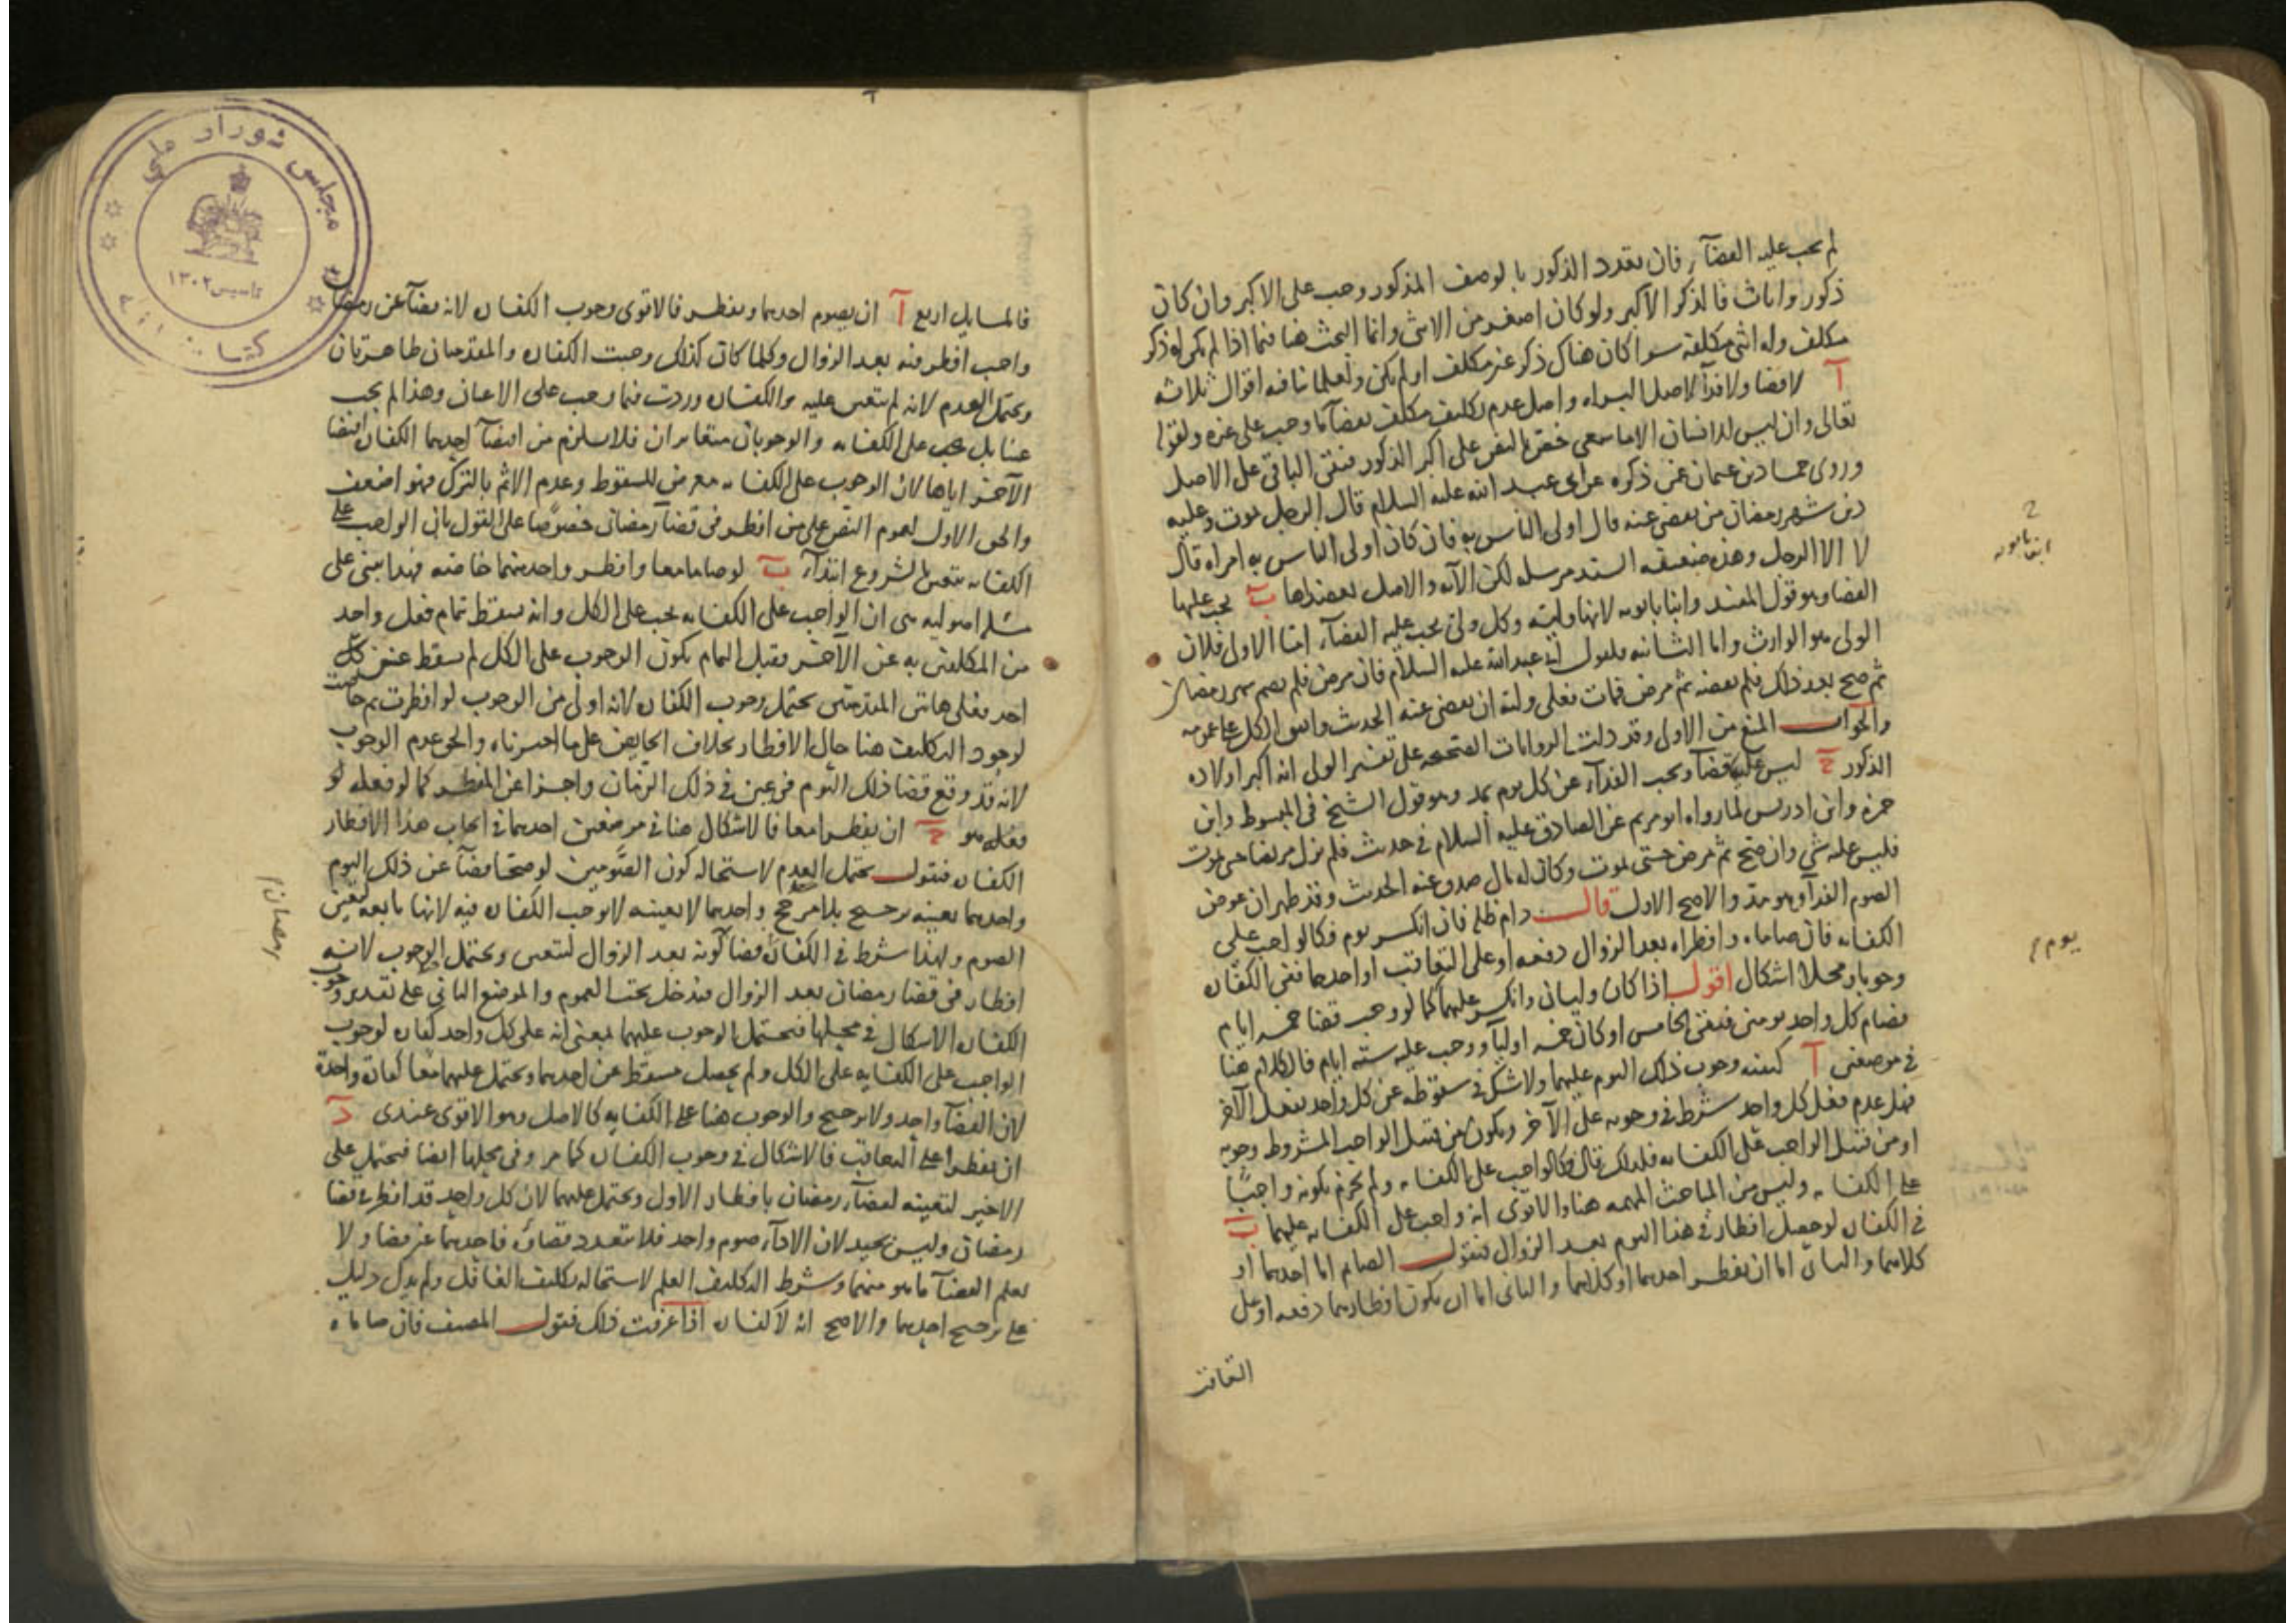 لم يجب عليه القضاء فان تعدد الذكور بالوصف المذكور وجب على الاكبر وان كان
ذكور واناث فالذكر الاكبر ولو كان اصغر من الانثى وانما البحث هنا فيما اذا لم يكن له ذكر
مكلف وله انثى مكلفة سوا كان هناك ذكر غير مكلف او لم يكن ولعلمائنا فيه اقوال ثلاثه
آ لا قضا ولا فدآ لاصل البراه واصل عدم تكليف مكلف بقضآ ما وجب على غيره ولقوله
تعالى وان ليس للانسان الا ما سعى خص بالنص على اكبر الذكور فبقى الباقى على الاصل
وروى حماد بن عثمان عمن ذكره عن ابى عبد الله عليه السلام قال الرجل يموت وعليه
دين شهر رمضان من يقضى عنه قال اولى الناس به فان كان اولى الناس به امراه قال
لا الا الرجل وهذه ضعيفه السند مرسله لكن الآيه والاصل يعضداها ب يجب عليها
القضا وهو قول المفيد وابنا بابويه لانها وليه وكل ولى يجب عليه القضآء اما الاولى فلان
الولى هو الوارث واما الثانيه فلقول ابى عبد الله عليه السلام فان مرض فلم يصم شهر رمضان
ثم صح بعد ذلك فلم يقضه ثم مرض فمات فعلى وليه ان يقضى عنه الحديث وليس الكل على عمومه
والجواب المنع من الاولى وقد دلت الروايات الصحيحه على تفسير الولى انه اكبر اولاده
الذكور ج ليس عليها قضآ ويجب الفدآء عن كل يوم بمد وهو قول الشيخ فى المبسوط وابن
حمزه وابن ادريس لما رواه ابو مريم عن الصادق عليه السلام فى حديث فلم يزل مريضا حتى يموت
فليس عليه شى وان صح ثم مرض حتى يموت وكان له مال صدق عنه الحديث وقد ظهر ان عوض
الصوم الفدآ وهو مد والاصح الاول قال دام ظله فان انكسر يوم فكالواجب على
الكفايه فان صاماه وافطراه بعد الزوال دفعه او على التعاقب او احدهما ففى الكفاره
وجوبا ومحلا اشكال اقول اذا كان وليان وانكسر عليهما كما لو وجب قضا خمسه ايام
فصام كل واحد يومين فبقى الخامس او كان خمسه اوليآ ووجب عليه سته ايام فالكلام هنا
فى موضعين آ كيفيه وجوب ذلك اليوم عليهما ولا شك فى سقوطه عن كل واحد بفعل الآخر
فهل عدم فعل كل واحد شرط فى وجوبه على الآخر ويكون من قبيل الواجب المشروط وجوبه
او من قبيل الواجب على الكفايه فلذلك قال فكالواجب على الكفايه ولم يجزم بكونه واجبًا
على الكفايه وليس من المباحث المهمه هنا والاقوى انه واجب على الكفايه عليهما ب
فى الكفاره لو حصل افطار فى هذا اليوم بعد الزوال فنقول الصيام اما احدهما او
كلاهما والثانى اما ان يفطر احدهما او كلاهما والثانى اما ان يكون افطارهما دفعه او على
التعاقب
ابنا بابويه
يوم
فالمسايل اربع آ ان يصوم احدهما ويفطر فالاقوى وجوب الكفاره لانه قضآ عن رمضان
واجب افطر فيه بعد الزوال وكلما كان كذلك وجبت الكفاره والمقدمتان ظاهرتان
ويحتمل العدم لانه لم يتعين عليه والكفاره وردت فيما يجب على الاعيان وهذا لم يجب
عينا بل يجب على الكفايه والوجوبان متغايران فلا يلزم من اقتضآ احدهما الكفاره اقتضا
الآخر اياها لان الوجوب على الكفايه معرض للسقوط وعدم الاثم بالترك فهو اضعف
والحق الاول لعموم النص على من افطر فى قضآ رمضان خصوصًا على القول بان الواجب على
الكفايه يتعين بالشروع ابتدآء ب لو صاما معا وافطر واحد منهما خاصه فهذا يبنى على
مسله اصوليه هى ان الواجب على الكفايه يجب على الكل وانه يسقط بتمام فعل واحد
من المكلفين به عن الآخر فقبل التمام يكون الوجوب على الكل لم يسقط عن كل
احد فعلى هاتين المقدمتين يحتمل وجوب الكفاره لانه اولى من الوجوب لو افطرت ثم حاضت
لوجود التكليف هنا حال الافطار بخلاف الحايض على ما اخبرناه والحق عدم الوجوب
لانه قد وقع قضا ذلك اليوم فرض عين فى ذلك الزمان واجزا عن المفطر كما لو فعله لو
فعله هو ج ان يفطرا معا فالاشكال هنا فى موضعين احدهما فى ايجاب هذا الافطار
الكفاره فنقول يحتمل العدم لاستحاله كون الصومين لو صحا قضآ عن ذلك اليوم
واحدهما بعينه ترجيح بلا مرجح واحدهما لا بعينه لا يوجب الكفاره فيه لانها تابعه لتعين
الصوم ولهذا شرط فى الكفاره قضآ كونه بعد الزوال لتعين ويحتمل الوجوب لانه
افطار فى قضا رمضان بعد الزوال فيدخل تحت العموم والموضع الثانى على تقدير وجوب
الكفاره الاشكال فى محلها فيحتمل الوجوب عليهما بمعنى انه على كل واحد كفاره لوجوب
الواجب على الكفايه على الكل ولم يحصل مسقط عن احدهما ويحتمل عليهما معًا كفاره واحدة
لان القضآ واحد ولا ترجيح والوجوب هنا على الكفايه كالاصل وهو الاقوى عندى د
ان يفطرا على التعاقب فالاشكال فى وجوب الكفاره كما مر وفى محلها ايضا فيحتمل على
الاخير لتعينه لقضآء رمضان بافطار الاول ويحتمل عليهما لان كل واحد قد افطر فى قضا
رمضان وليس بجيد لان الادآء صوم واحد فلا يتعدد قضاؤه فاحدهما غير قضا ولا
يعلم القضآ ما هو منهما وشرط التكليف العلم لاستحاله تكليف الغافل ولم يدل دليل
على ترجيح احدهما والاصح انه لا كفاره اذا عرفت ذلك فقول المصنف فان صاماه
رمضان
مجلس شوراى ملى
تاسيس ١٣٠٢